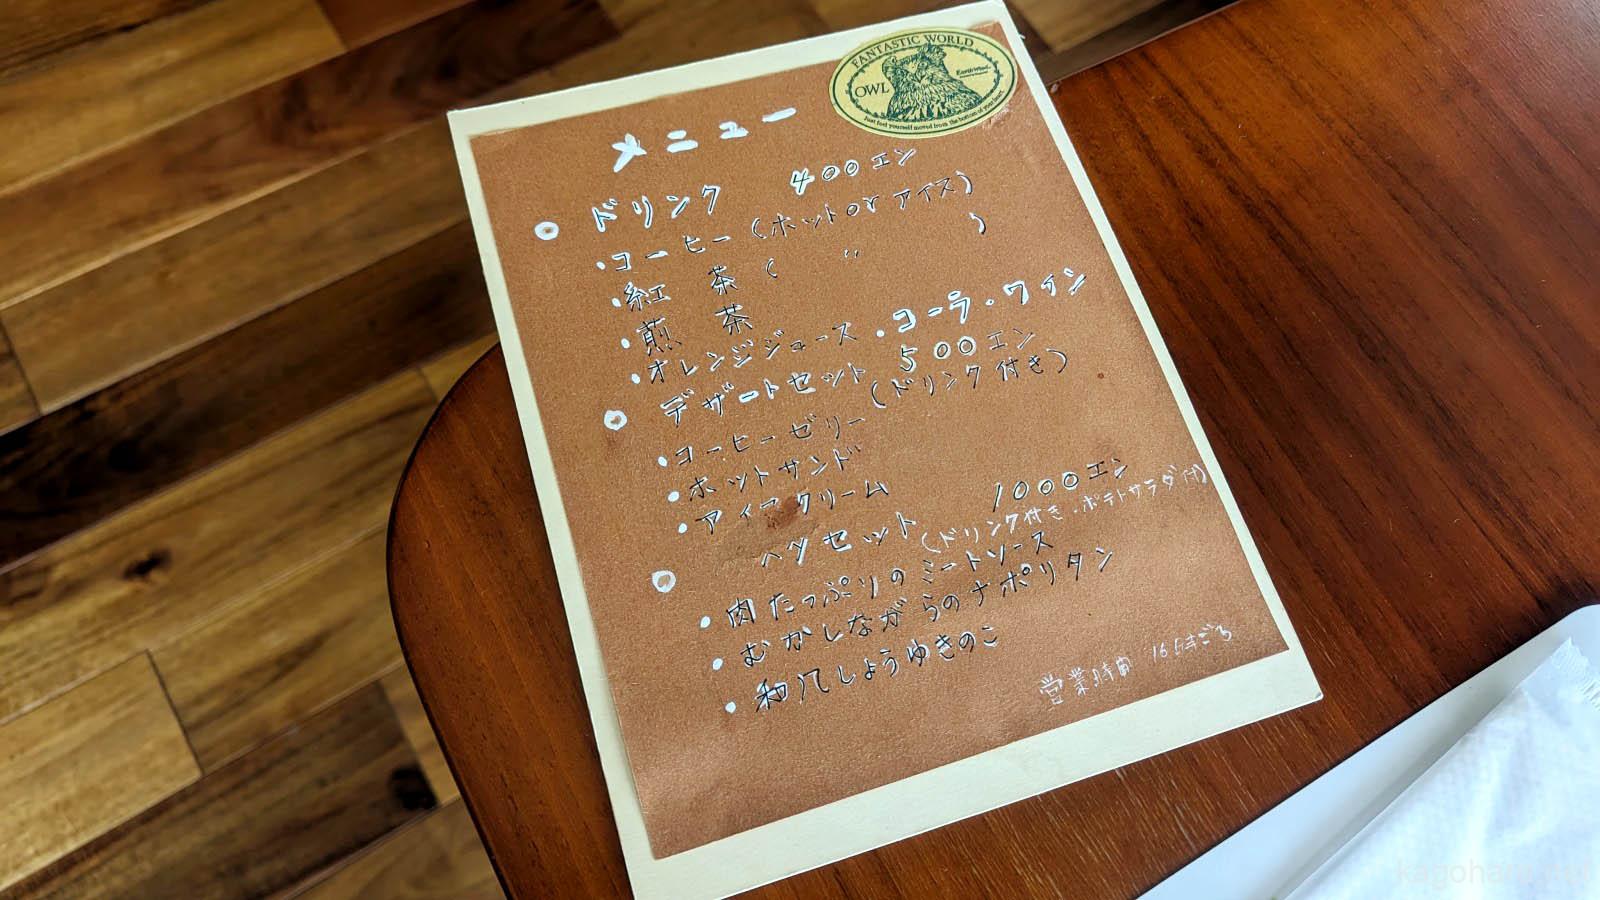 FANTASTIC WORLD
OWL
Just feel yourself moved from the bottom of your heart.
メニュー
◎ ドリンク 400エン
・コーヒー(ホットorアイス)
・紅 茶( 〃 )
・煎 茶
・オレンジジュース ・コーラ・ワイン
◎ デザートセット 500エン
(ドリンク付き)
・コーヒーゼリー
・ホットサンド
・アイスクリーム
◎ パスタセット 1000エン
(ドリンク付き・ポテトサラダ付)
・肉たっぷりのミートソース
・むかしながらのナポリタン
・和風しょうゆきのこ
営業時間 16時ごろ
kagoharu.net